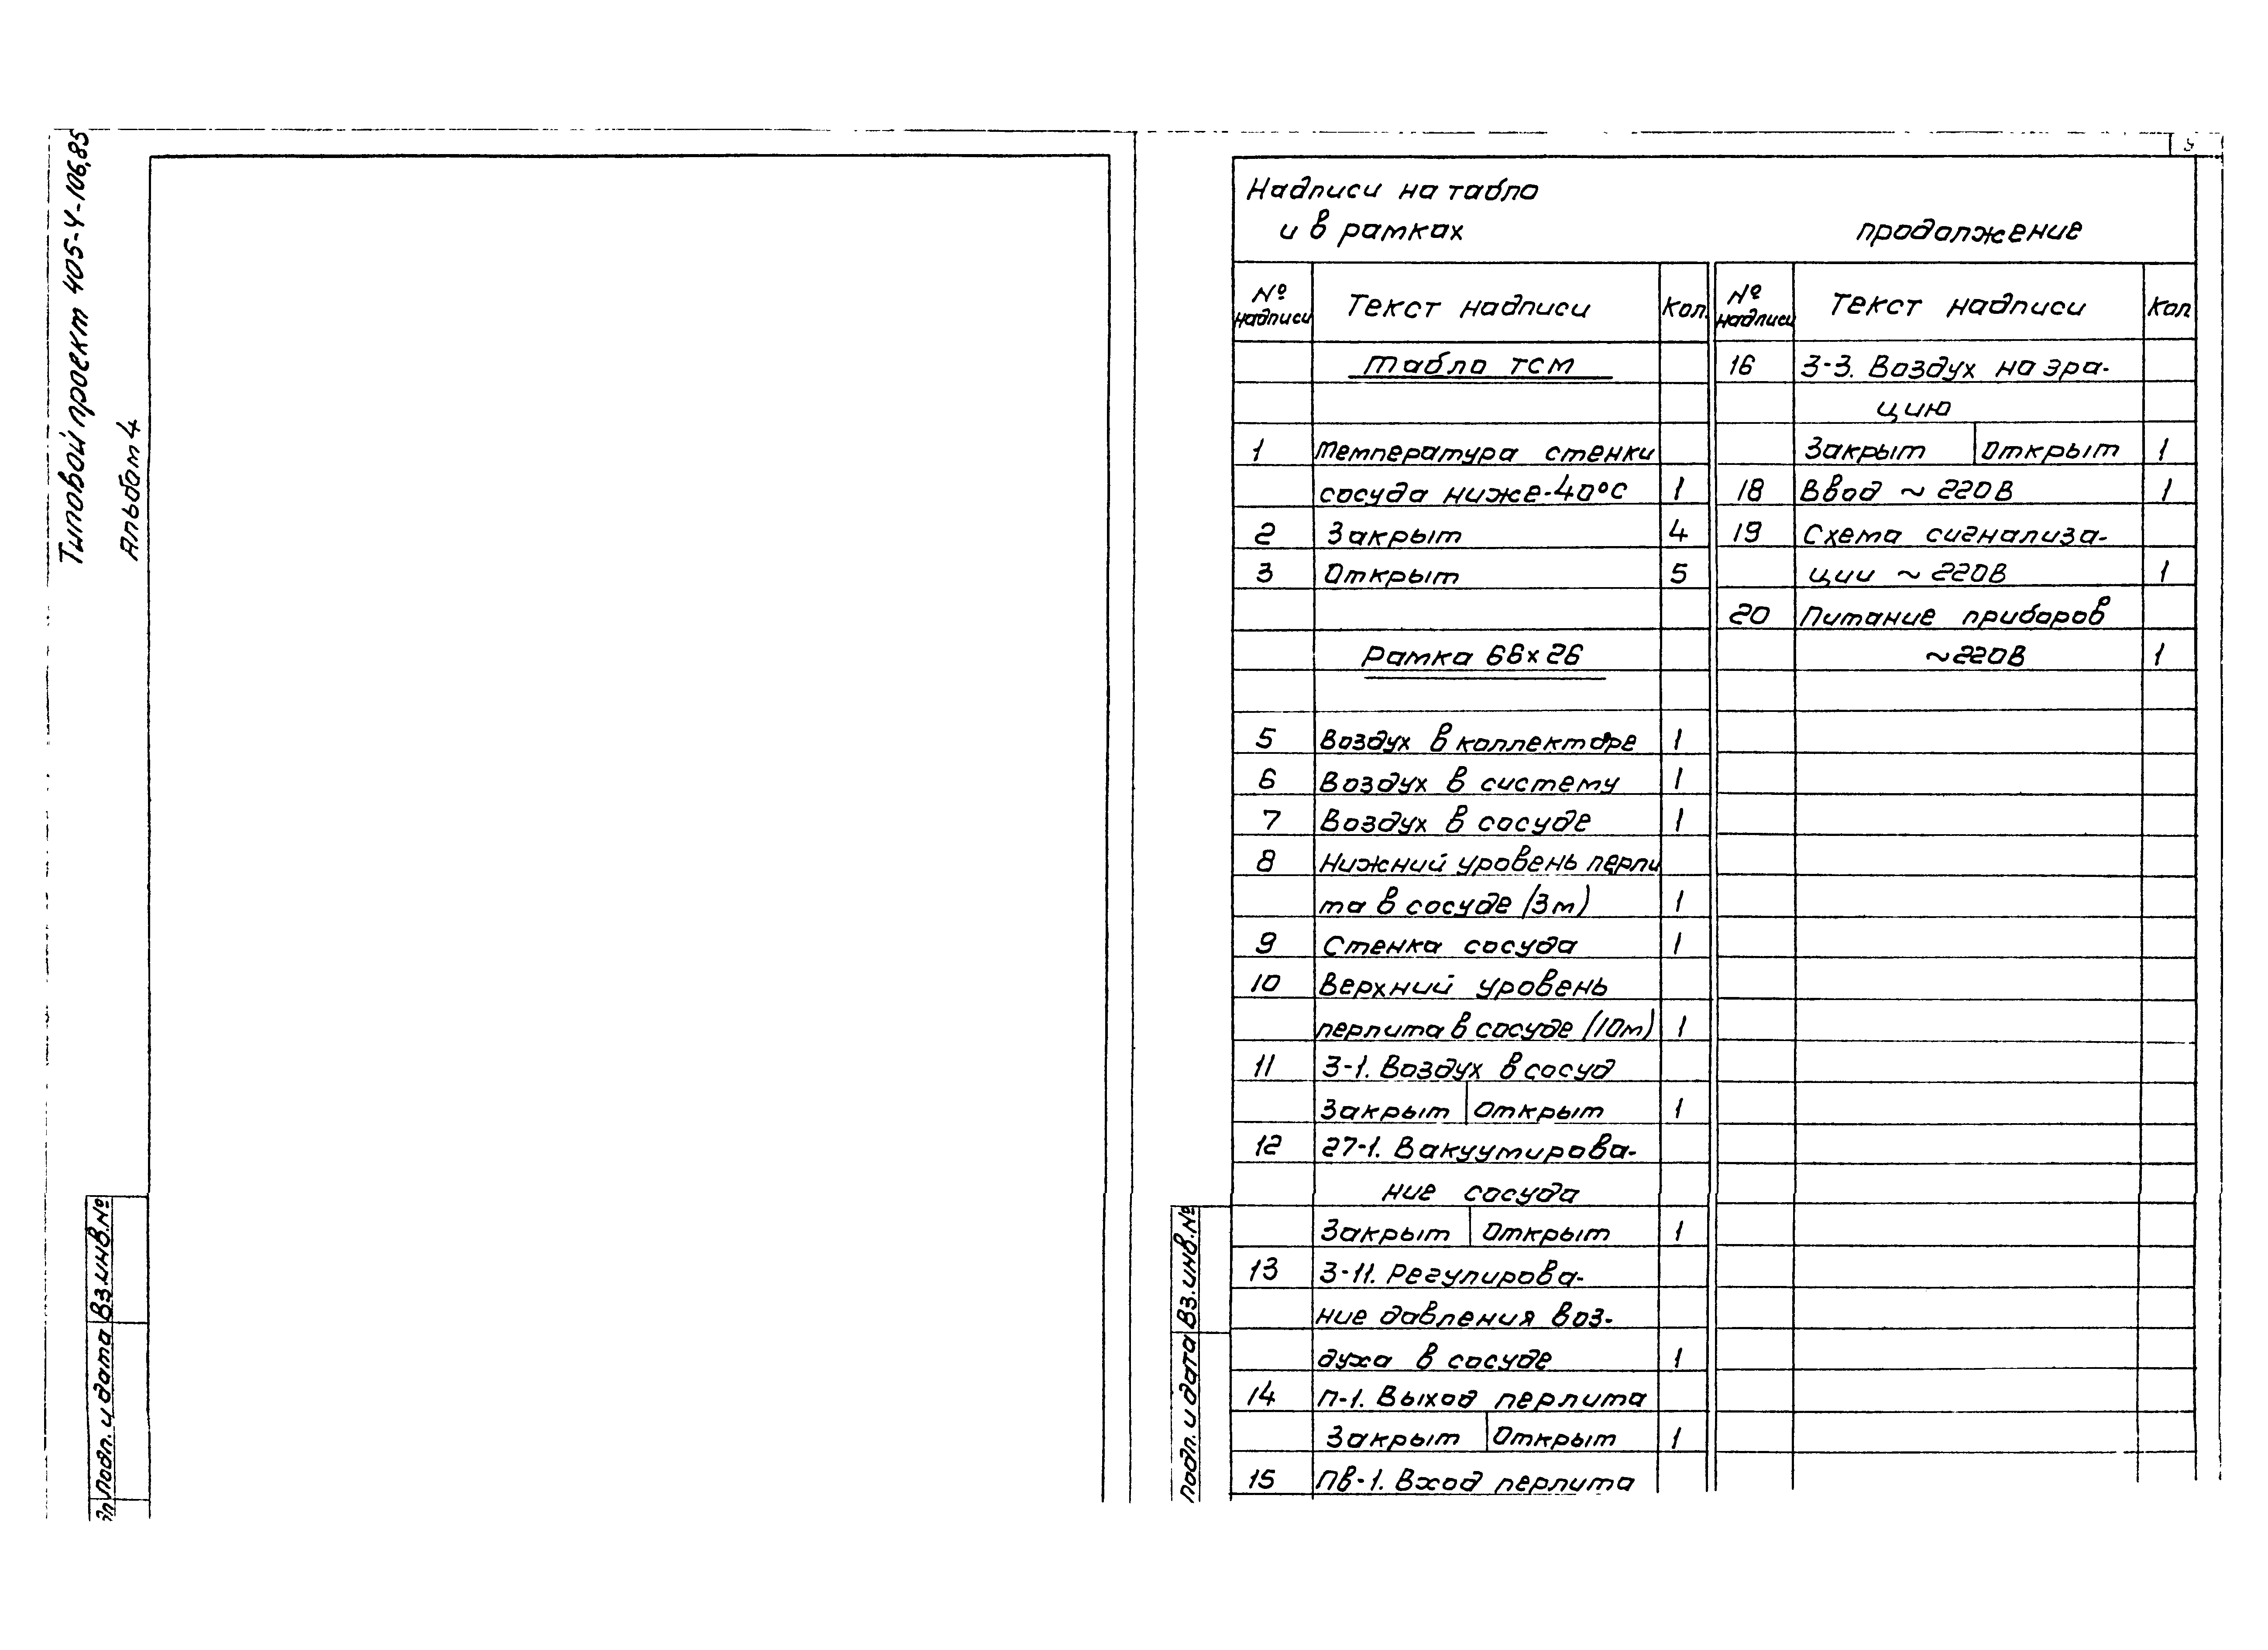 Типовой проект 405-4-106.85
Альбом 4
Подп. и дата
Вз.инв.№
9
Надписи на табло
и в рамках
продолжение
№ надписи
Текст надписи
Кол.
Табло ТСМ
1 Температура стенки
сосуда ниже-40°С 1
2 Закрыт 4
3 Открыт 5
Рамка 66х26
5 Воздух в коллекторе 1
6 Воздух в систему 1
7 Воздух в сосуде 1
8 Нижний уровень перли
та в сосуде (3м) 1
9 Стенка сосуда 1
10 Верхний уровень
перлита в сосуде (10м) 1
11 З-1. Воздух в сосуд
Закрыт Открыт 1
12 27-1. Вакуумирова-
ние сосуда
Закрыт Открыт 1
13 З-11. Регулирова-
ние давления воз-
духа в сосуде 1
14 П-1. Выход перлита
Закрыт Открыт 1
15 Пв-1. Вход перлита
№ надписи
Текст надписи
Кол
16 З-3. Воздух на эра-
цию
Закрыт Открыт 1
18 Ввод ~ 220В 1
19 Схема сигнализа-
ции ~ 220В 1
20 Питание приборов
~220В 1
подп. и дата
Вз.инв.№